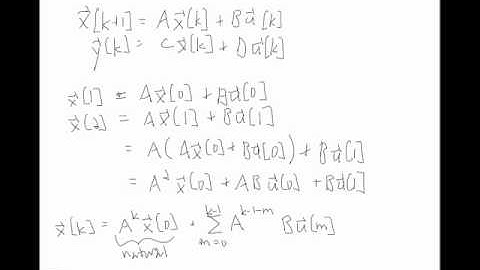 x⃗[k+1] = Ax⃗[k] + Bu⃗[k]
y⃗[k] = Cx⃗[k] + Du⃗[k]
x⃗[1] = Ax⃗[0] + Bu⃗[0]
x⃗[2] = Ax⃗[1] + Bu⃗[1]
= A(Ax⃗[0] + Bu⃗[0]) + Bu⃗[1]
= A²x⃗[0] + ABu⃗[0] + Bu⃗[1]
x⃗[k] = Aᵏx⃗[0] + ∑_{m=0}^{k-1} A^{k-1-m} Bu⃗[m]
natural